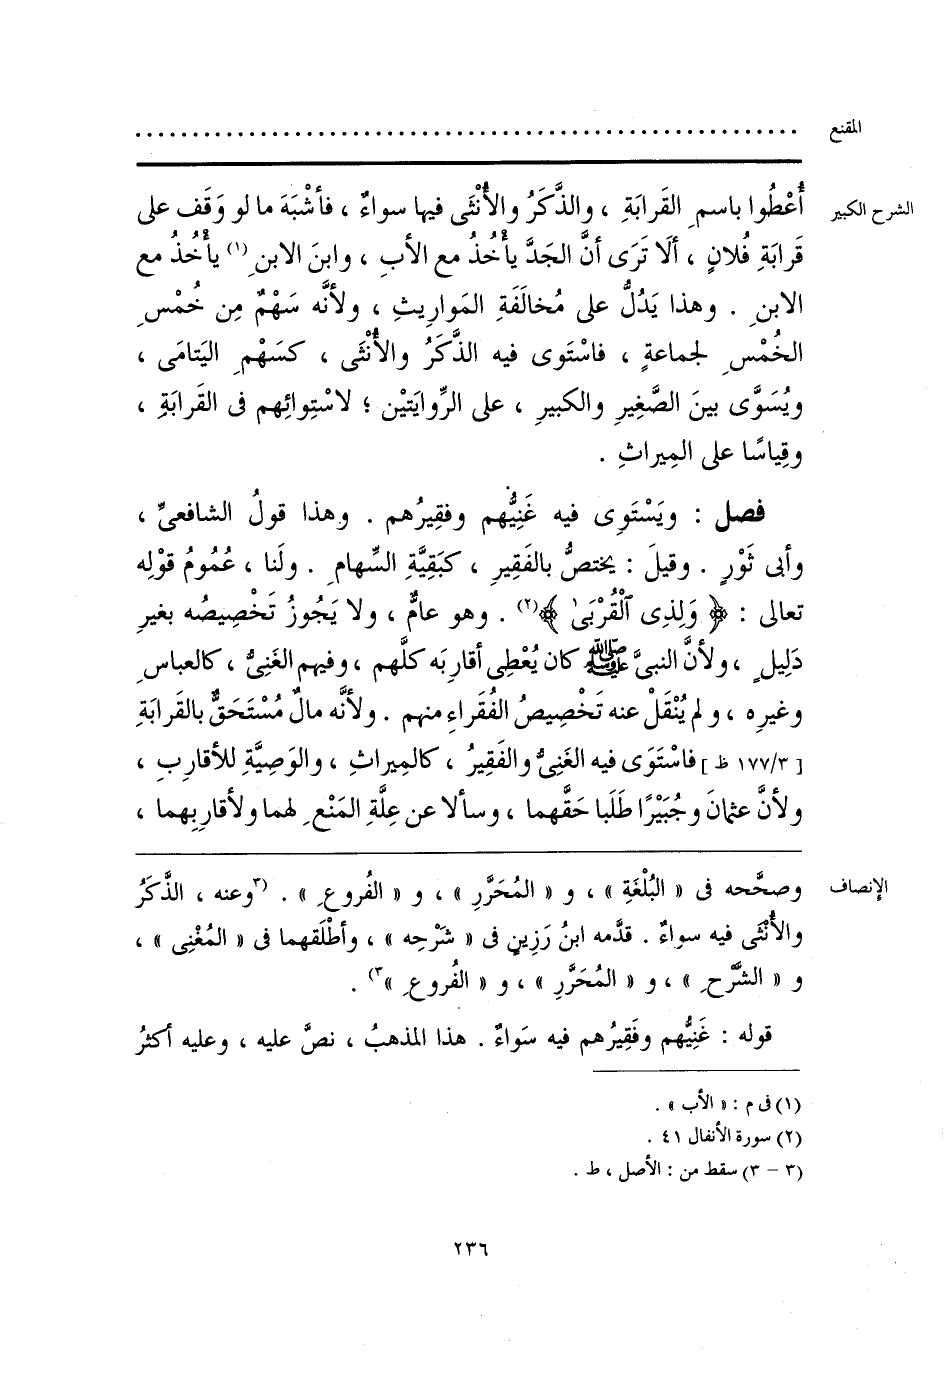 المقنع ........................................................
الشرح الكبير أُعْطُوا باسمِ القَرابَةِ ، والذَّكَرُ والأُنْثَى فيها سواءٌ ، فأشْبَهَ ما لو وَقَف على
قَرابَةِ فُلانٍ ، ألَا تَرَى أنَّ الجَدَّ يأْخُذُ مع الأبِ ، وابنَ الابنِ(١) يأْخُذُ مع
الابنِ . وهذا يَدُلُّ على مُخالَفَةِ المَوارِيثِ ، ولأنَّه سَهْمٌ مِن خُمْسِ
الخُمْسِ لجماعةٍ ، فاسْتَوى فيه الذَّكَرُ والأُنْثَى ، كسَهْمِ اليَتامَى ،
ويُسَوَّى بينَ الصَّغِيرِ والكبيرِ ، على الرِّوايَتَيْن ؛ لاسْتِوائِهم فى القَرابَةِ ،
وقِياسًا على المِيراثِ .
فصل : ويَسْتَوِى فيه غَنِيُّهم وفقِيرُهم . وهذا قولُ الشافعىِّ ،
وأبى ثَوْرٍ . وقيلَ : يختصُّ بالفَقِيرِ ، كبَقِيَّةِ السِّهامِ . ولَنا ، عُمُومُ قوْلِه
تعالى : ﴿ وَلِذِى ٱلْقُرْبَىٰ ﴾(٢) . وهو عامٌّ ، ولا يَجُوزُ تَخْصِيصُه بغيرِ
دَلِيلٍ ، ولأنَّ النبىَّ ﷺ كان يُعْطِى أقارِبَه كلَّهم ، وفيهم الغَنِىُّ ، كالعباسِ
وغيرِه ، ولم يُنْقَلْ عنه تَخْصِيصُ الفُقَراءِ منهم . ولأنَّه مالٌ مُسْتَحَقٌّ بالقَرابَةِ
[ ١٧٧/٣ ظ ] فاسْتَوَى فيه الغَنِىُّ والفَقِيرُ ، كالمِيراثِ ، والوَصِيَّةِ للأقارِبِ ،
ولأنَّ عثمانَ وجُبَيْرًا طَلَبا حَقَّهما ، وسألا عن عِلَّةِ المَنْعِ لهما ولأقارِبِهما ،
الإنصاف وصحَّحه فى « البُلْغَةِ » ، و « المُحَرَّرِ » ، و « الفُروعِ » . (٣وعنه ، الذَّكَرُ
والأُنْثَى فيه سواءٌ . قدَّمه ابنُ رَزِينٍ فى « شَرْحِه » ، وأطْلَقهما فى « المُغْنِى » ،
و « الشَّرْحِ » ، و « المُحَرَّرِ » ، و « الفُروعِ »٣) .
قوله : غَنِيُّهم وفَقِيرُهم فيه سَواءٌ . هذا المذهبُ ، نصَّ عليه ، وعليه أكثرُ
(١) فى م : « الأب » .
(٢) سورة الأنفال ٤١ .
(٣ - ٣) سقط من : الأصل ، ط .
٢٣٦